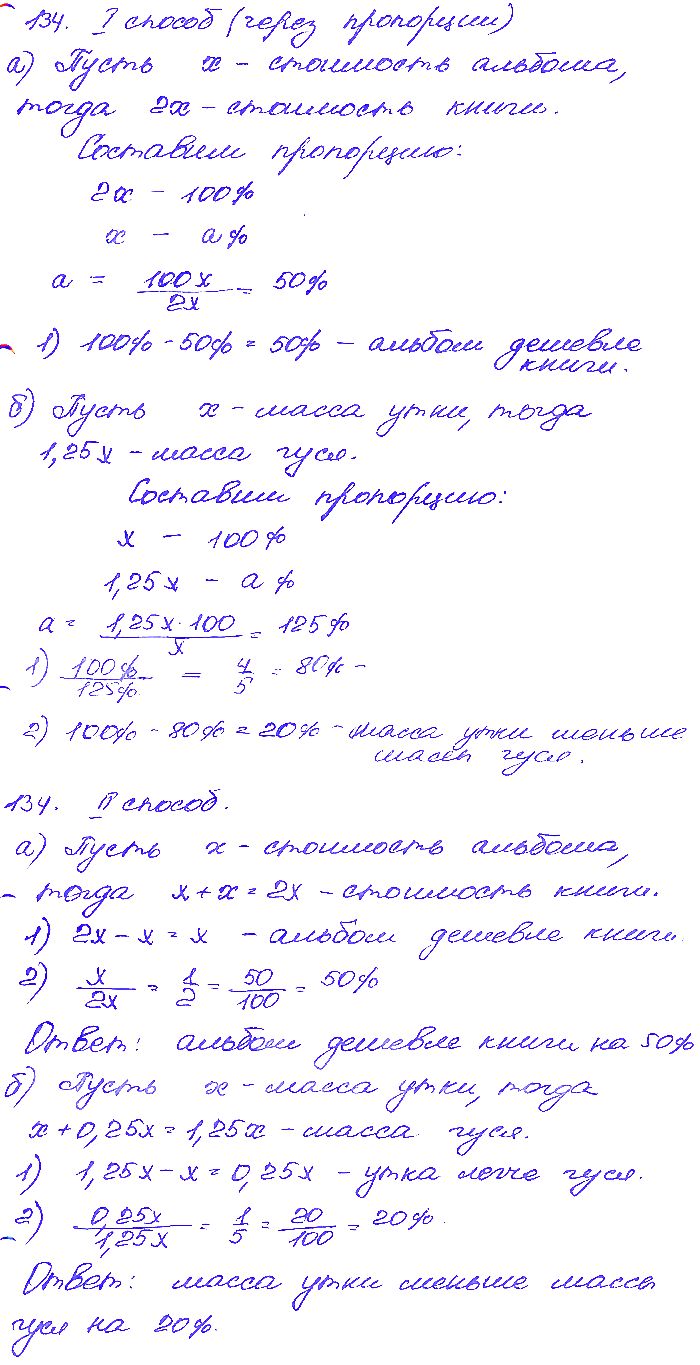 134. I способ (через пропорции)
а) Пусть x - стоимость альбома,
тогда 2x - стоимость книги.
Составим пропорцию:
2x - 100%
x - a%
a = 100x/2x = 50%
1) 100% - 50% = 50% - альбом дешевле
книги.
б) Пусть x - масса утки, тогда
1,25x - масса гуся.
Составим пропорцию:
x - 100%
1,25x - a%
a = 1,25x·100/x = 125%
1) 100%/125% = 4/5 = 80% -
2) 100% - 80% = 20% - масса утки меньше
массы гуся.
134. II способ.
а) Пусть x - стоимость альбома,
тогда x + x = 2x - стоимость книги.
1) 2x - x = x - альбом дешевле книги.
2) x/2x = 1/2 = 50/100 = 50%
Ответ: альбом дешевле книги на 50%
б) Пусть x - масса утки, тогда
x + 0,25x = 1,25x - масса гуся.
1) 1,25x - x = 0,25x - утка легче гуся.
2) 0,25x/1,25x = 1/5 = 20/100 = 20%.
Ответ: масса утки меньше массы
гуся на 20%.